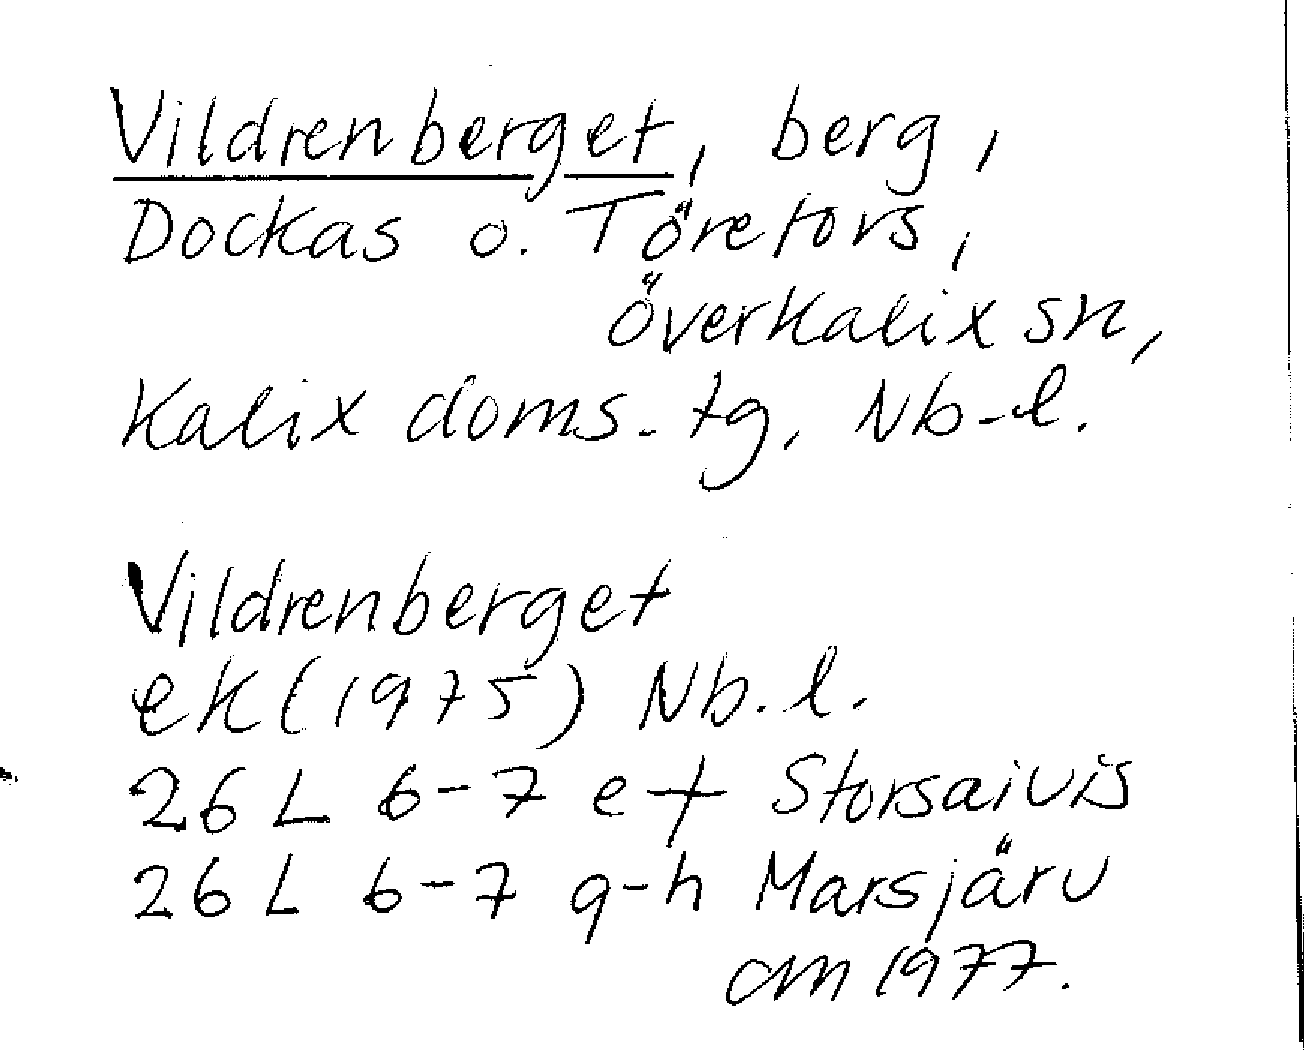 Vildrenberget, berg,
Dockas o. Töretors,
överkalix sn,
Kalix doms.tg, Nb-l.
Vildrenberget
ek (1975) Nb.l.
26 L 6-7 e-f Storsaivis
26 L 6-7 g-h Marsjärv
am 1977.